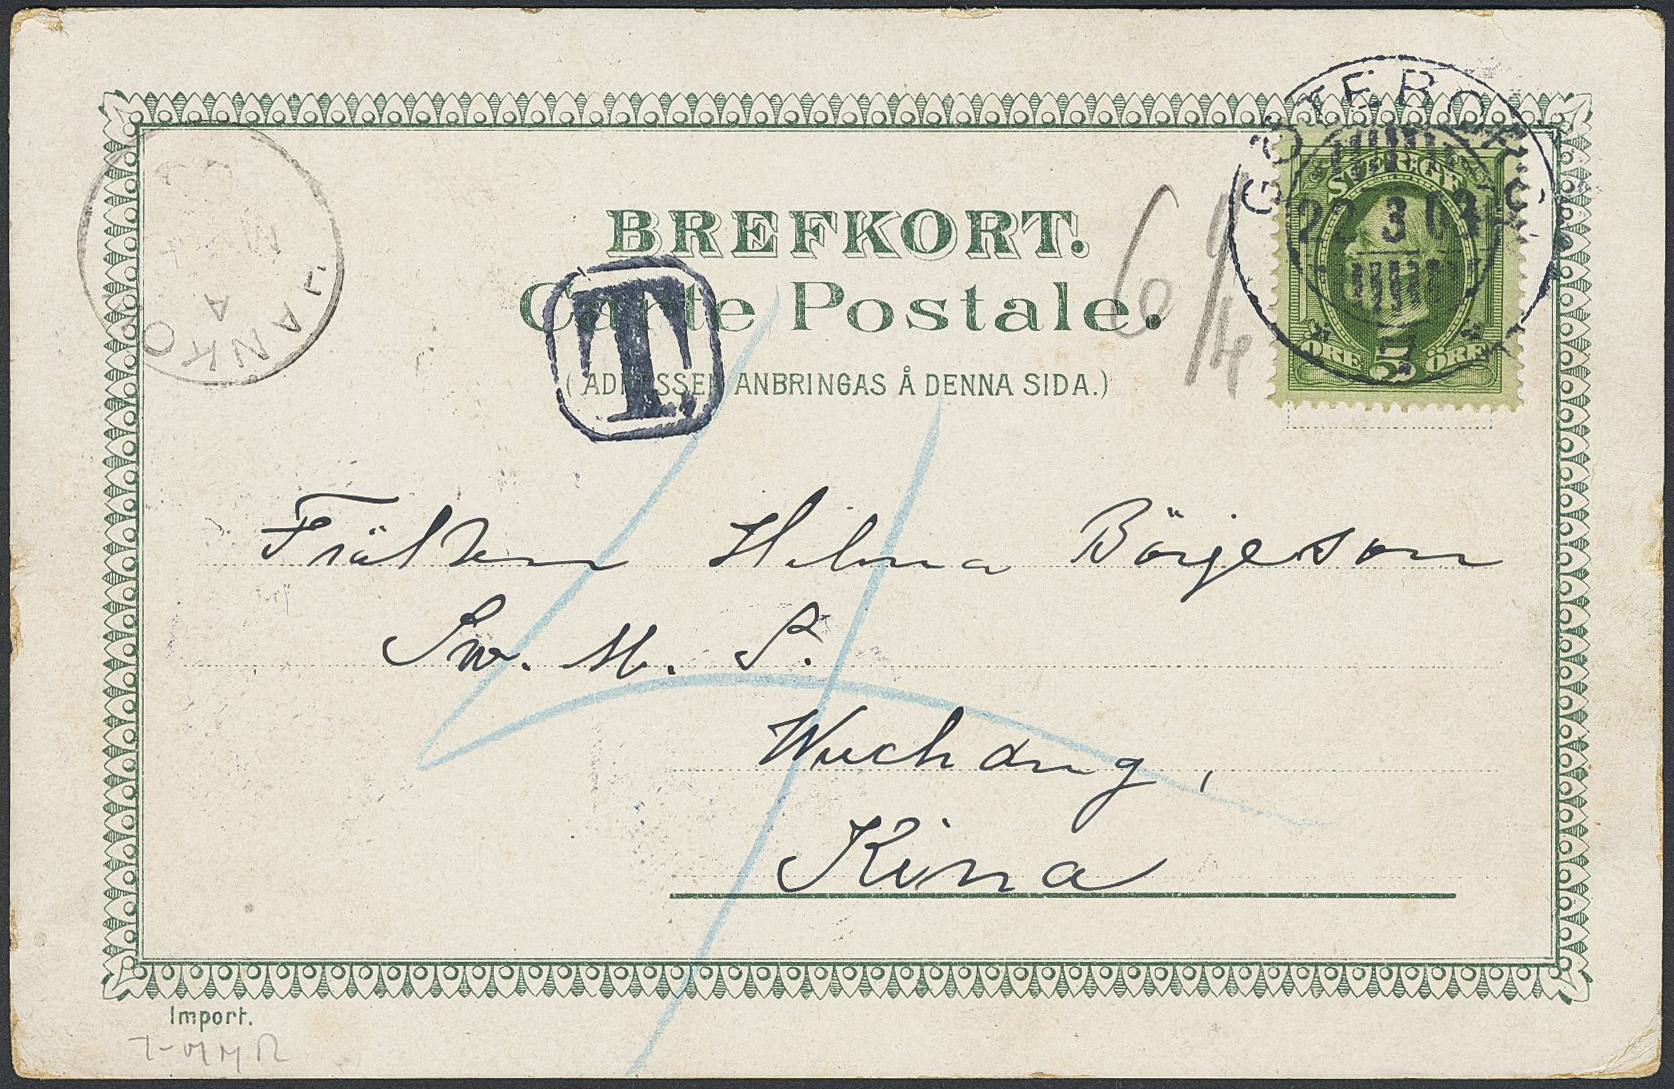 GÖTEBORG
SVERIGE
22 3 04
ÖRE 5 ÖRE
BREFKORT.
Carte Postale.
6/4
T.
(ADRESSEN ANBRINGAS Å DENNA SIDA.)
HANKO
A
Fröken Hilma Börjeson
Sw. M. S.
Wuchang,
Kina
4
Import.